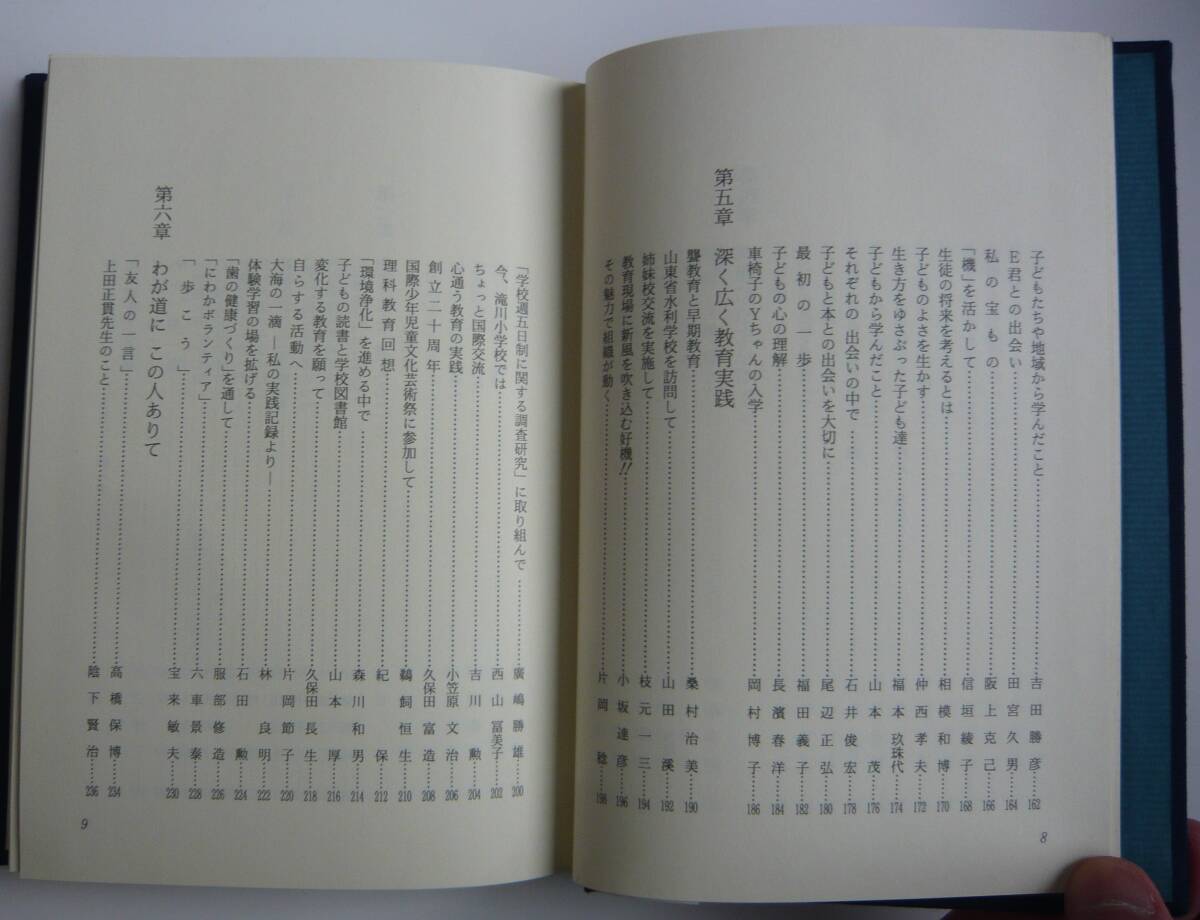 子どもたちや地域から学んだこと……吉田勝彦……162
E君との出会い……田宮久男……164
私の宝もの……阪上克己……166
「機」を活かして……信垣綾子……168
生徒の将来を考えるとは……相模和博……170
子どものよさを生かす……仲西孝夫……172
生き方をゆさぶった子ども達……福本玖珠代……174
子どもから学んだこと……山本茂……176
それぞれの出会いの中で……石井俊宏……178
子どもと本との出会いを大切に……尾辺正弘……180
最初の一歩……福田義子……182
子どもの心の理解……長濱春洋……184
車椅子のYちゃんの入学……岡村博子……186
第五章 深く広く教育実践
聾教育と早期教育……桑村治美……190
山東省水利学校を訪問して……山田溪……192
姉妹校交流を実施して……枝元一三……194
教育現場に新風を吹き込む好機!!……小坂達彦……196
その魅力で組織が動く……片岡稔……198
8
「学校週五日制に関する調査研究」に取り組んで……廣嶋勝雄……200
今、滝川小学校では……西山冨美子……202
ちょっと国際交流……吉川勲……204
心通う教育の実践……小笠原文治……206
創立二十周年……久保田富造……208
国際少年児童文化芸術祭に参加して……鵜飼恒生……210
理科教育回想……紀保……212
「環境浄化」を進める中で……森川和男……214
子どもの読書と学校図書館……山本厚……216
変化する教育を願って……久保田長生……218
自らする活動へ……片岡節子……220
大海の一滴―私の実践記録より―……林良明……222
体験学習の場を拡げる……石田勲……224
「歯の健康づくり」を通して……服部修造……226
「にわかボランティア」……六車景泰……228
「歩こう」……宝来敏夫……230
第六章 わが道に この人ありて
「友人の一言」……高橋保博……234
上田正貫先生のこと……陰下賢治……236
9